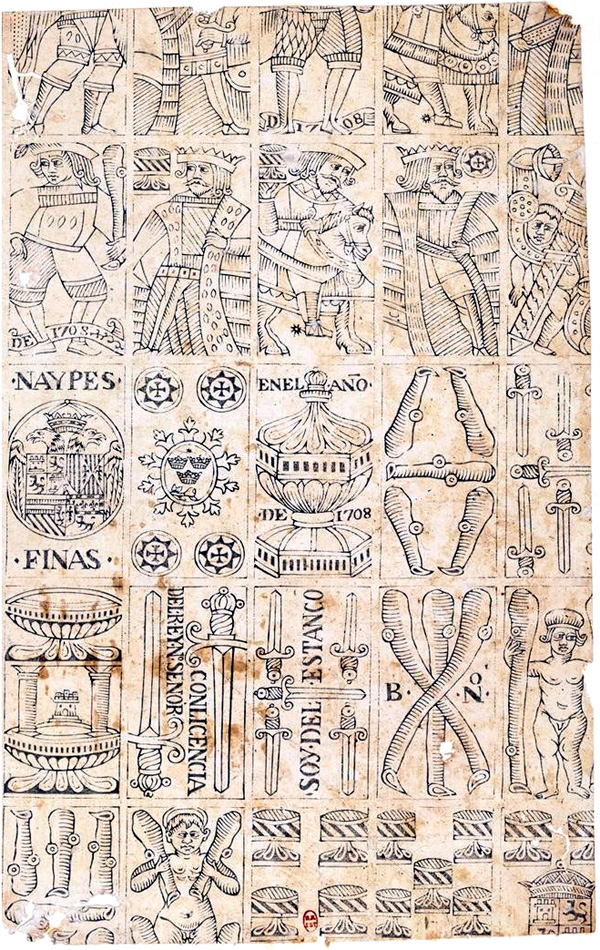 D 17 08
DE 1708
·NAYPES·
·FINAS·
ENEL AÑO·
·DE· 1708
DELREYN·SENOR
CONLICENCIA
SOY·DEL·ESTANCO
B· ·Nº·